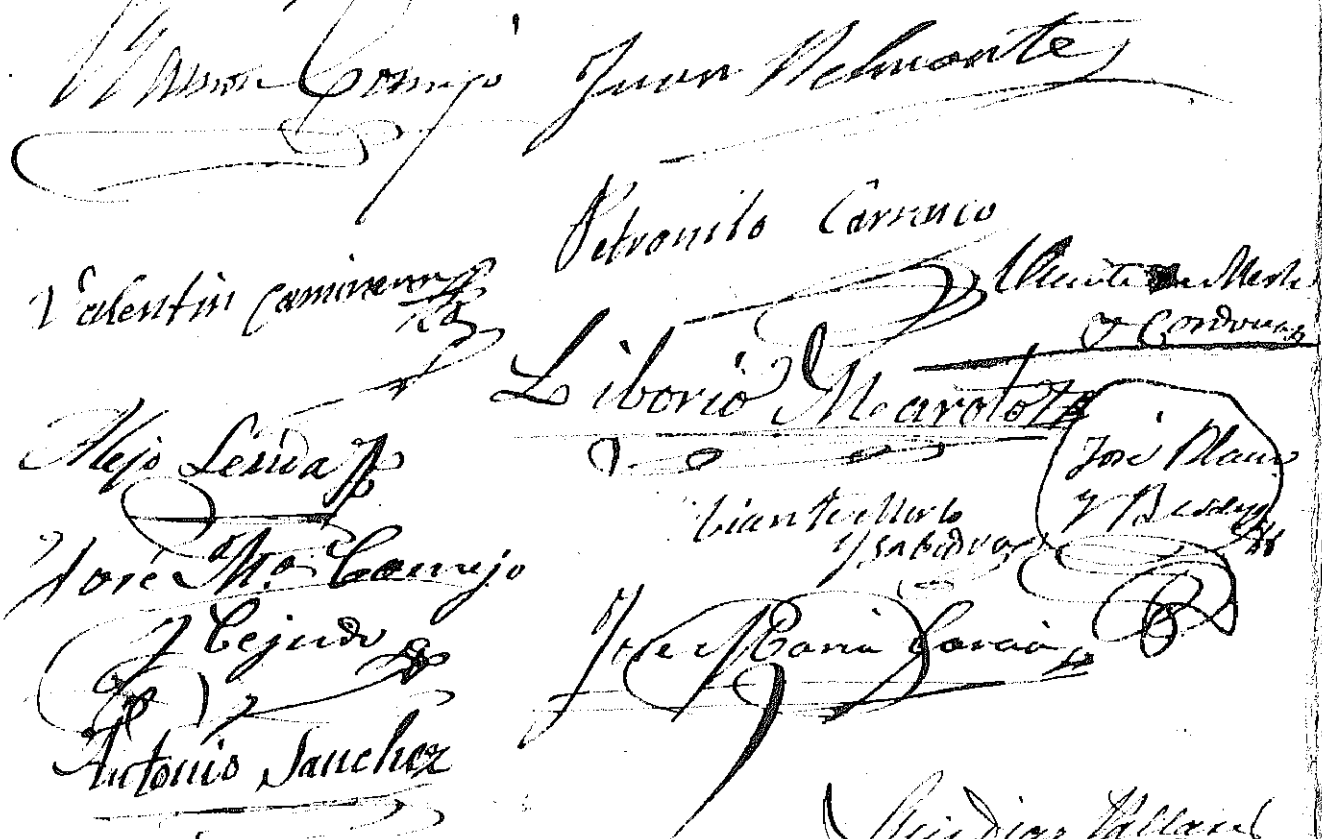 Ramon Cornejo
Juan Belmonte
Petronilo Carrasco
Valentin Caminero
Vicente Merlo
y Cordova
Liborio Maroto
Alejo Lerida
José Blanco
y
Vicente Merlo
y
José Mª Cornejo
y Cejudo
José Maria Garcia
Antonio Sanchez